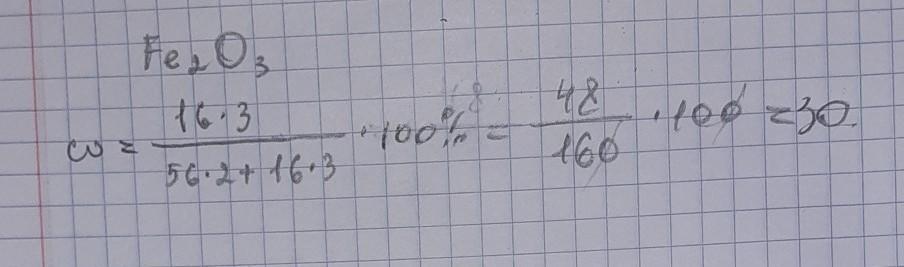 Fe₂O₃
ω = 16·3 / 56·2+16·3 · 100% = 48 / 160 · 100 = 30.